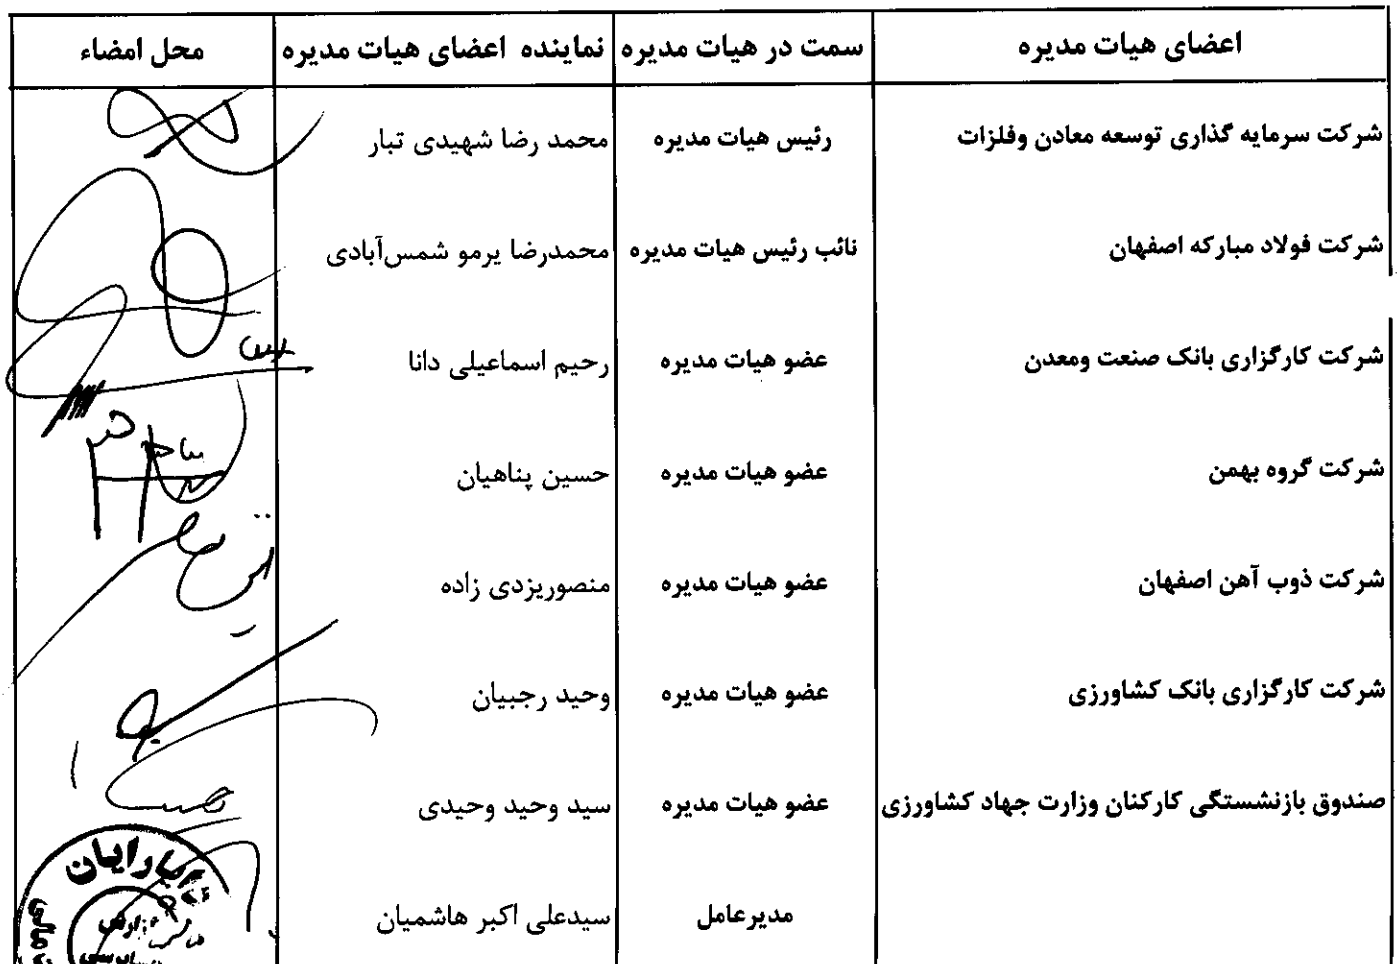 اعضای هیات مدیره سمت در هیات مدیره نماینده اعضای هیات مدیره محل امضاء
شرکت سرمایه گذاری توسعه معادن وفلزات رئیس هیات مدیره محمد رضا شهیدی تبار
شرکت فولاد مبارکه اصفهان نائب رئیس هیات مدیره محمدرضا یرمو شمس‌آبادی
شرکت کارگزاری بانک صنعت ومعدن عضو هیات مدیره رحیم اسماعیلی دانا
شرکت گروه بهمن عضو هیات مدیره حسین پناهیان
شرکت ذوب آهن اصفهان عضو هیات مدیره منصوریزدی زاده
شرکت کارگزاری بانک کشاورزی عضو هیات مدیره وحید رجبیان
صندوق بازنشستگی کارکنان وزارت جهاد کشاورزی عضو هیات مدیره سید وحید وحیدی
مدیرعامل سیدعلی اکبر هاشمیان